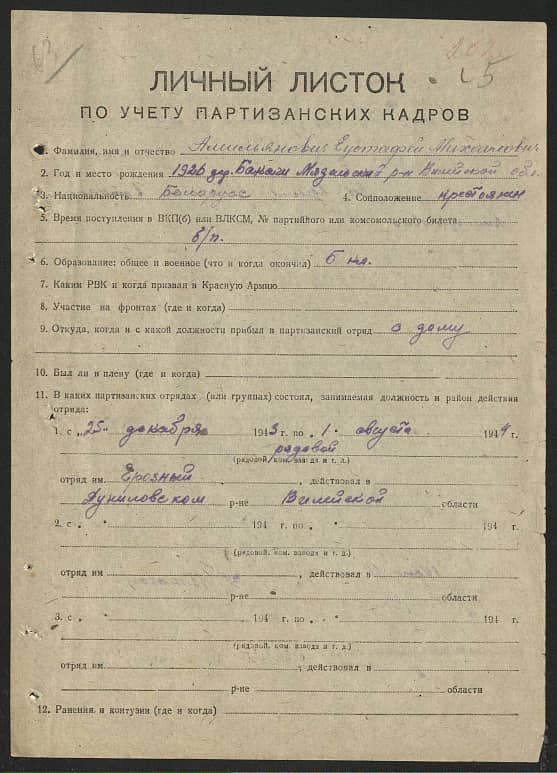 63
5
ЛИЧНЫЙ ЛИСТОК
ПО УЧЕТУ ПАРТИЗАНСКИХ КАДРОВ
1. Фамилия, имя и отчество Амильянович Еустафей Михайлович
2. Год и место рождения 1926 дер. Мядельский р-н Вилейской обл.
3. Национальность Белорус 4. Соцположение крестьянин
5. Время поступления в ВКП(б) или ВЛКСМ, № партийного или комсомольского билета
б/п.
6. Образование: общее и военное (что и когда окончил) 6 кл.
7. Каким РВК и когда призван в Красную Армию
8. Участие на фронтах (где и когда)
9. Откуда, когда и с какой должности прибыл в партизанский отряд с дому
10. Был ли в плену (где и когда)
11. В каких партизанских отрядах (или группах) состоял, занимаемая должность и район действия
отряда:
1. с „25" декабря 1943 г. по „1" августа 1944 г.
рядовой
(рядовой, ком. взвода и т. д.)
отряд им Грозный, действовал в
Дуниловском р-не Вилейской области
2. с „ " 194 г. по „ " 194 г.
(рядовой, ком. взвода и т. д.)
отряд им , действовал в
р-не области
3. с „ " 194 г. по „ " 194 г.
(рядовой, ком. взвода и т. д.)
отряд им , действовал в
р-не области
12. Ранения и контузии (где и когда)